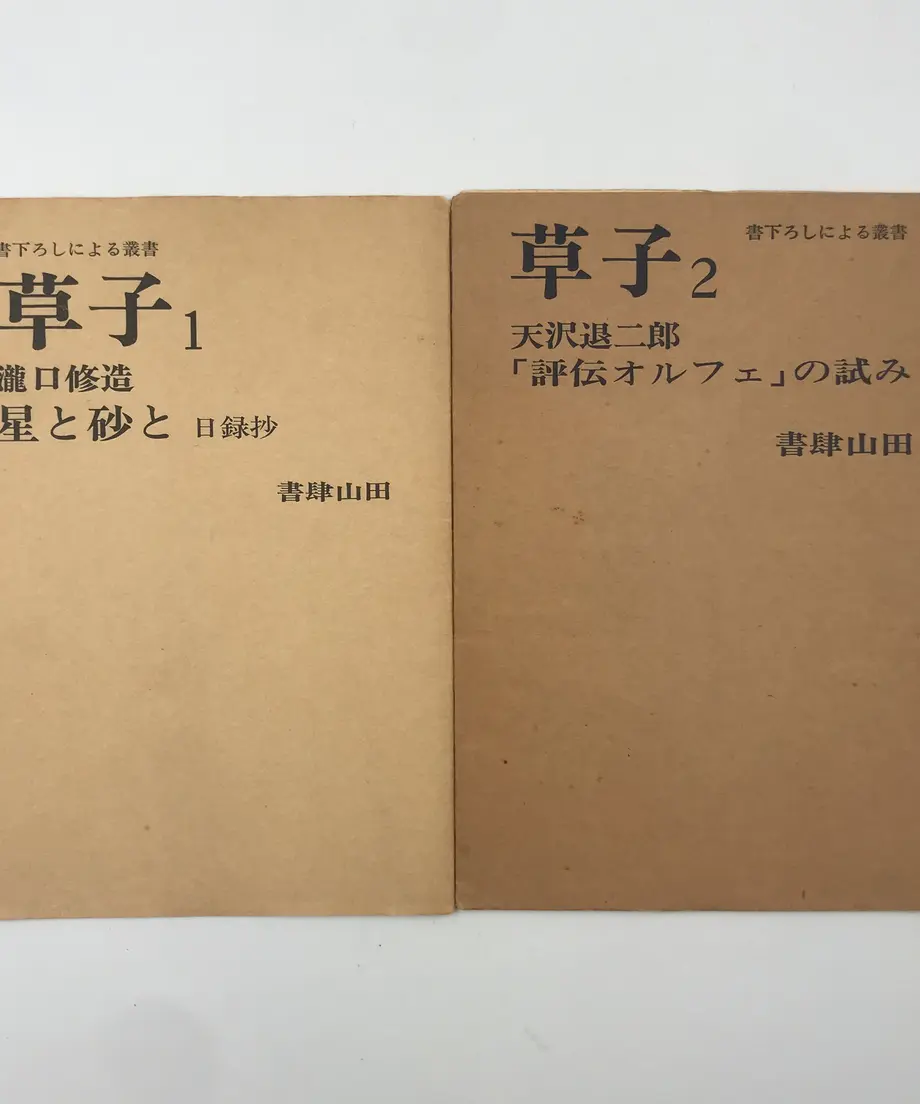 書下ろしによる叢書
草子1
瀧口修造
星と砂と 日録抄
書肆山田
書下ろしによる叢書
草子2
天沢退二郎
「評伝オルフェ」の試み
書肆山田